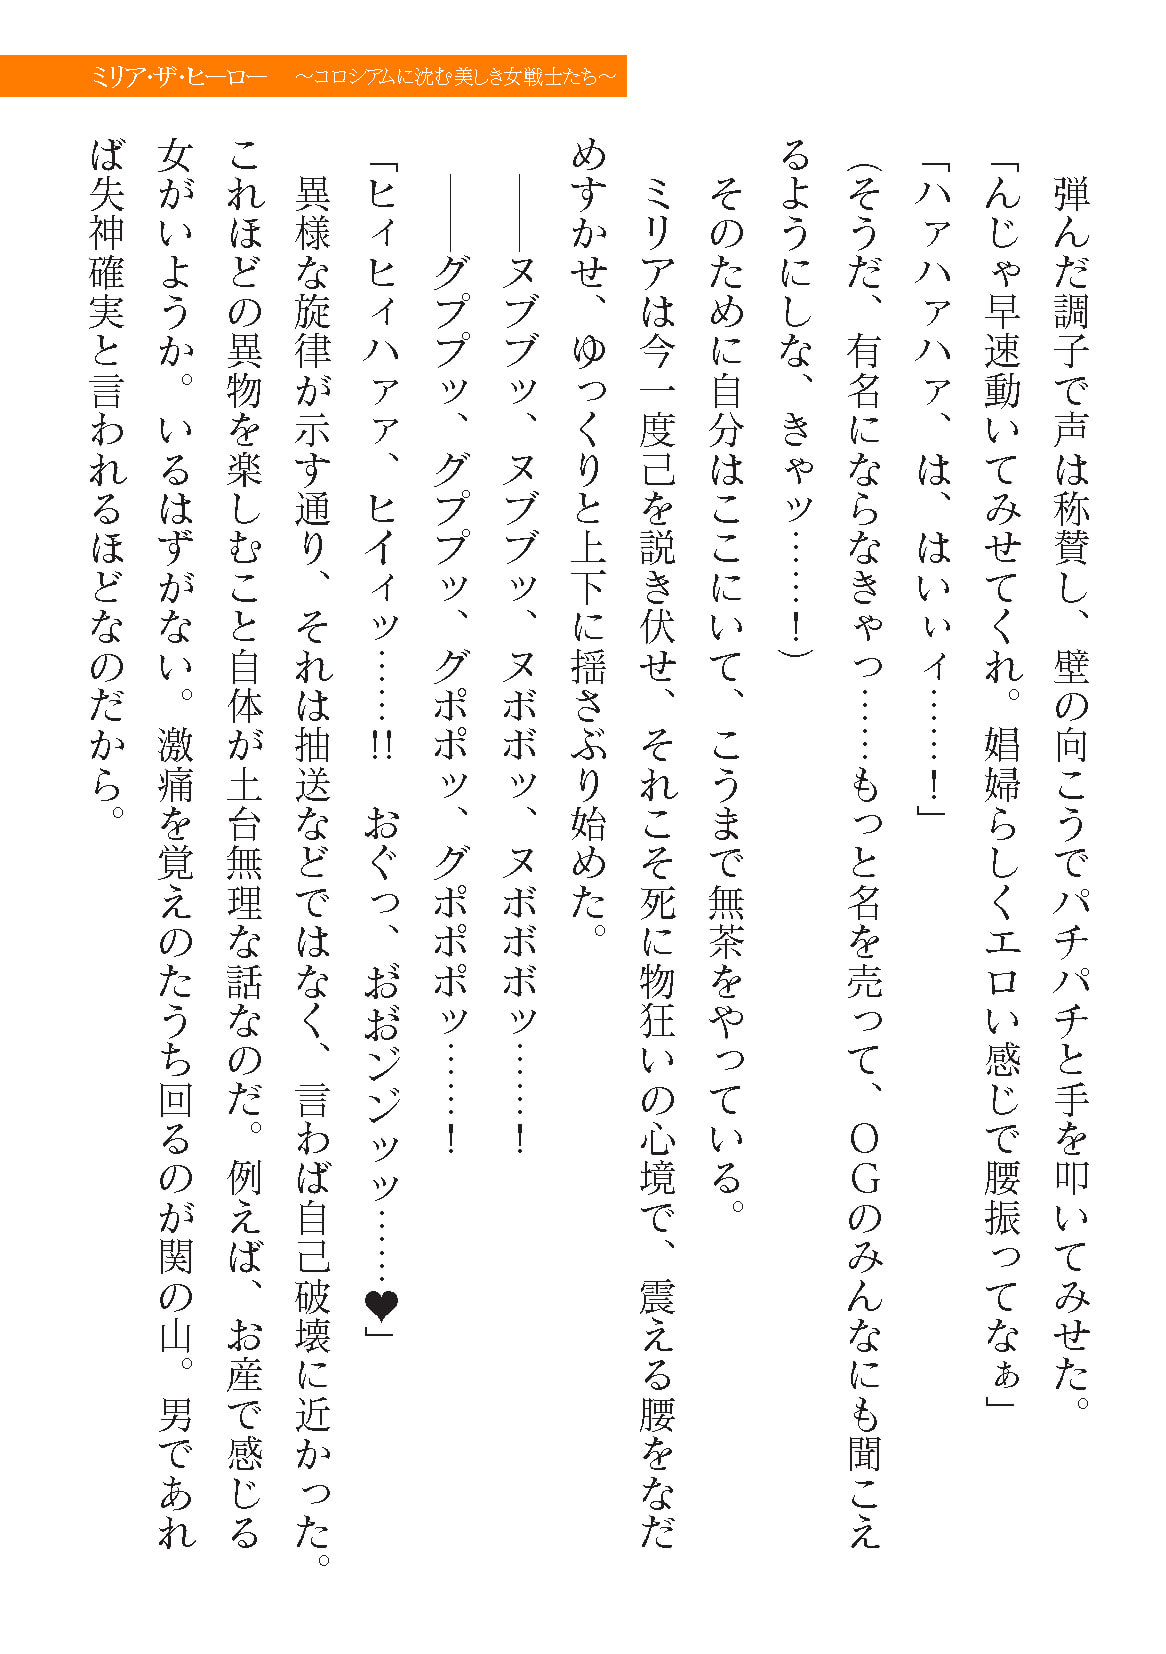 ミリア・ザ・ヒーロー　～コロシアムに沈む美しき女戦士たち～
　弾んだ調子で声は称賛し、壁の向こうでパチパチと手を叩いてみせた。
「んじゃ早速動いてみせてくれ。娼婦らしくエロい感じで腰振ってなぁ」
「ハァハァハァ、は、はいぃィ……！」
（そうだ、有名にならなきゃっ……もっと名を売って、ＯＧのみんなにも聞こえ
るようにしな、きゃッ……！）
　そのために自分はここにいて、こうまで無茶をやっている。
　ミリアは今一度己を説き伏せ、それこそ死に物狂いの心境で、震える腰をなだ
めすかせ、ゆっくりと上下に揺さぶり始めた。
　――ヌブブッ、ヌブブッ、ヌボボッ、ヌボボボッ……！
　――グププッ、グププッ、グポポッ、グポポポッ……！
「ヒィヒィハァァ、ヒイィッ……!!　おぐっ、お゛お゛ンンッッ……♥」
　異様な旋律が示す通り、それは抽送などではなく、言わば自己破壊に近かった。
これほどの異物を楽しむこと自体が土台無理な話なのだ。例えば、お産で感じる
女がいようか。いるはずがない。激痛を覚えのたうち回るのが関の山。男であれ
ば失神確実と言われるほどなのだから。